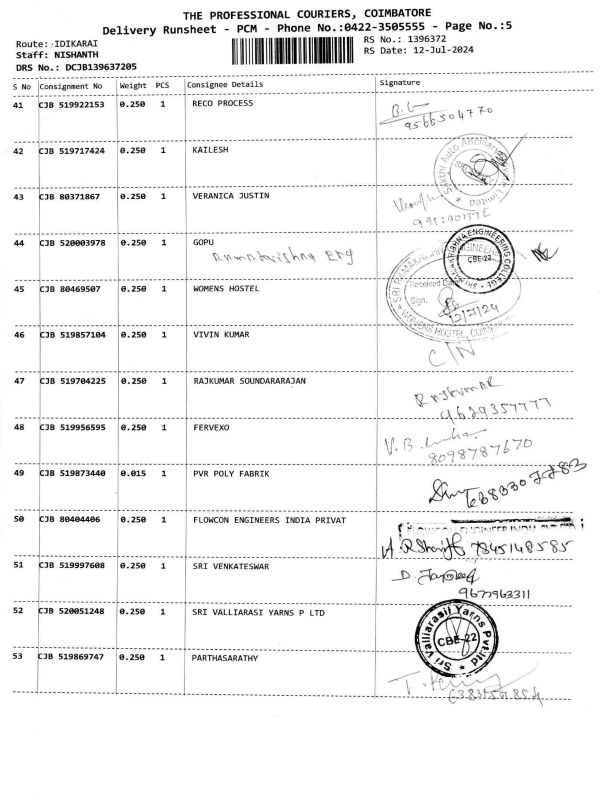 THE PROFESSIONAL COURIERS, COIMBATORE
Delivery Runsheet - PCM - Phone No.:0422-3505555 - Page No.:5
Route: IDIKARAI
RS No.: 1396372
Staff: NISHANTH
RS Date: 12-Jul-2024
DRS No.: DCJB139637205
S No Consignment No Weight PCS Consignee Details Signature
41 CJB 519922153 0.250 1 RECO PROCESS
9566504770
42 CJB 519717424 0.250 1 KAILESH
Sakthi Auto Ancillary Limited
43 CJB 80371867 0.250 1 VERANICA JUSTIN
44 CJB 520003978 0.250 1 GOPU
Ramakrishna Eng
SRI RAMAKRISHNA ENGINEERING COLLEGE
CBE-22
45 CJB 80469507 0.250 1 WOMENS HOSTEL
SRI RAMAKRISHNA ENGINEERING
Received
Sign.
12/7/24
WOMENS HOSTEL,
46 CJB 519857104 0.250 1 VIVIN KUMAR
C/N
47 CJB 519704225 0.250 1 RAJKUMAR SOUNDARARAJAN
RajkumAR
9629357777
48 CJB 519956595 0.250 1 FERVEXO
V.B.
8098787670
49 CJB 519873440 0.015 1 PVR POLY FABRIK
50 CJB 80404406 0.250 1 FLOWCON ENGINEERS INDIA PRIVAT
FLOWCON ENGINEER INDIA PVT LTD
7845148585
51 CJB 519997608 0.250 1 SRI VENKATESWAR
9677963311
52 CJB 520051248 0.250 1 SRI VALLIARASI YARNS P LTD
Sri Valliarasil Yarns Pvt.Ltd
CBE-22
53 CJB 519869747 0.250 1 PARTHASARATHY